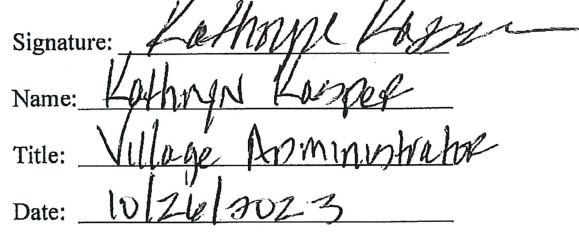 Signature: Kathryn Kasper
Name: Kathryn Kasper
Title: Village Administrator
Date: 10/26/2023